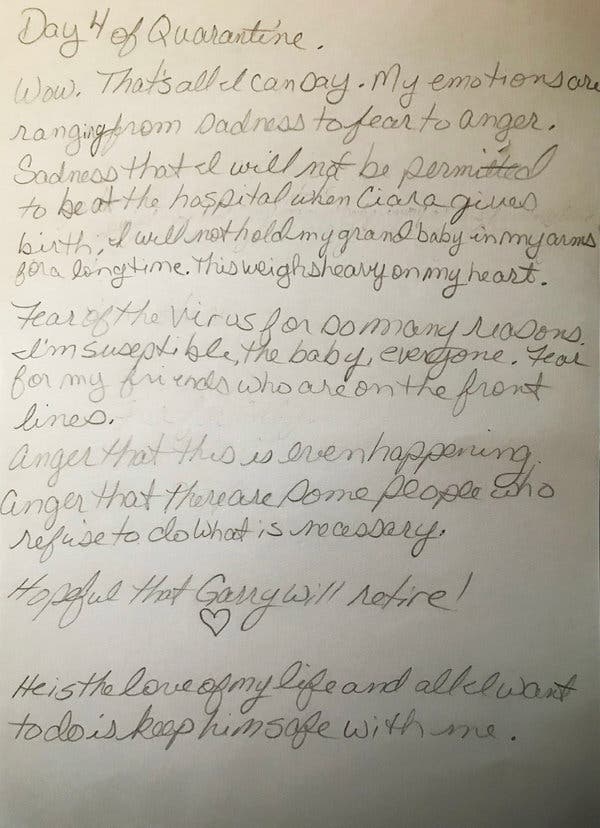 Day 4 of Quarantine.
Wow. That's all I can say. My emotions are
ranging from sadness to fear to anger.
Sadness that I will not be permitted
to be at the hospital when Ciara gives
birth, I will not hold my grand baby in my arms
for a long time. This weighs heavy on my heart.
Fear of the virus for so many reasons.
I'm suseptible, the baby, everyone. Fear
for my friends who are on the front
lines.
Anger that this is even happening.
Anger that there are some people who
refuse to do what is necessary.
Hopeful that Garry will retire!
He is the love of my life and all I want
to do is keep him safe with me.